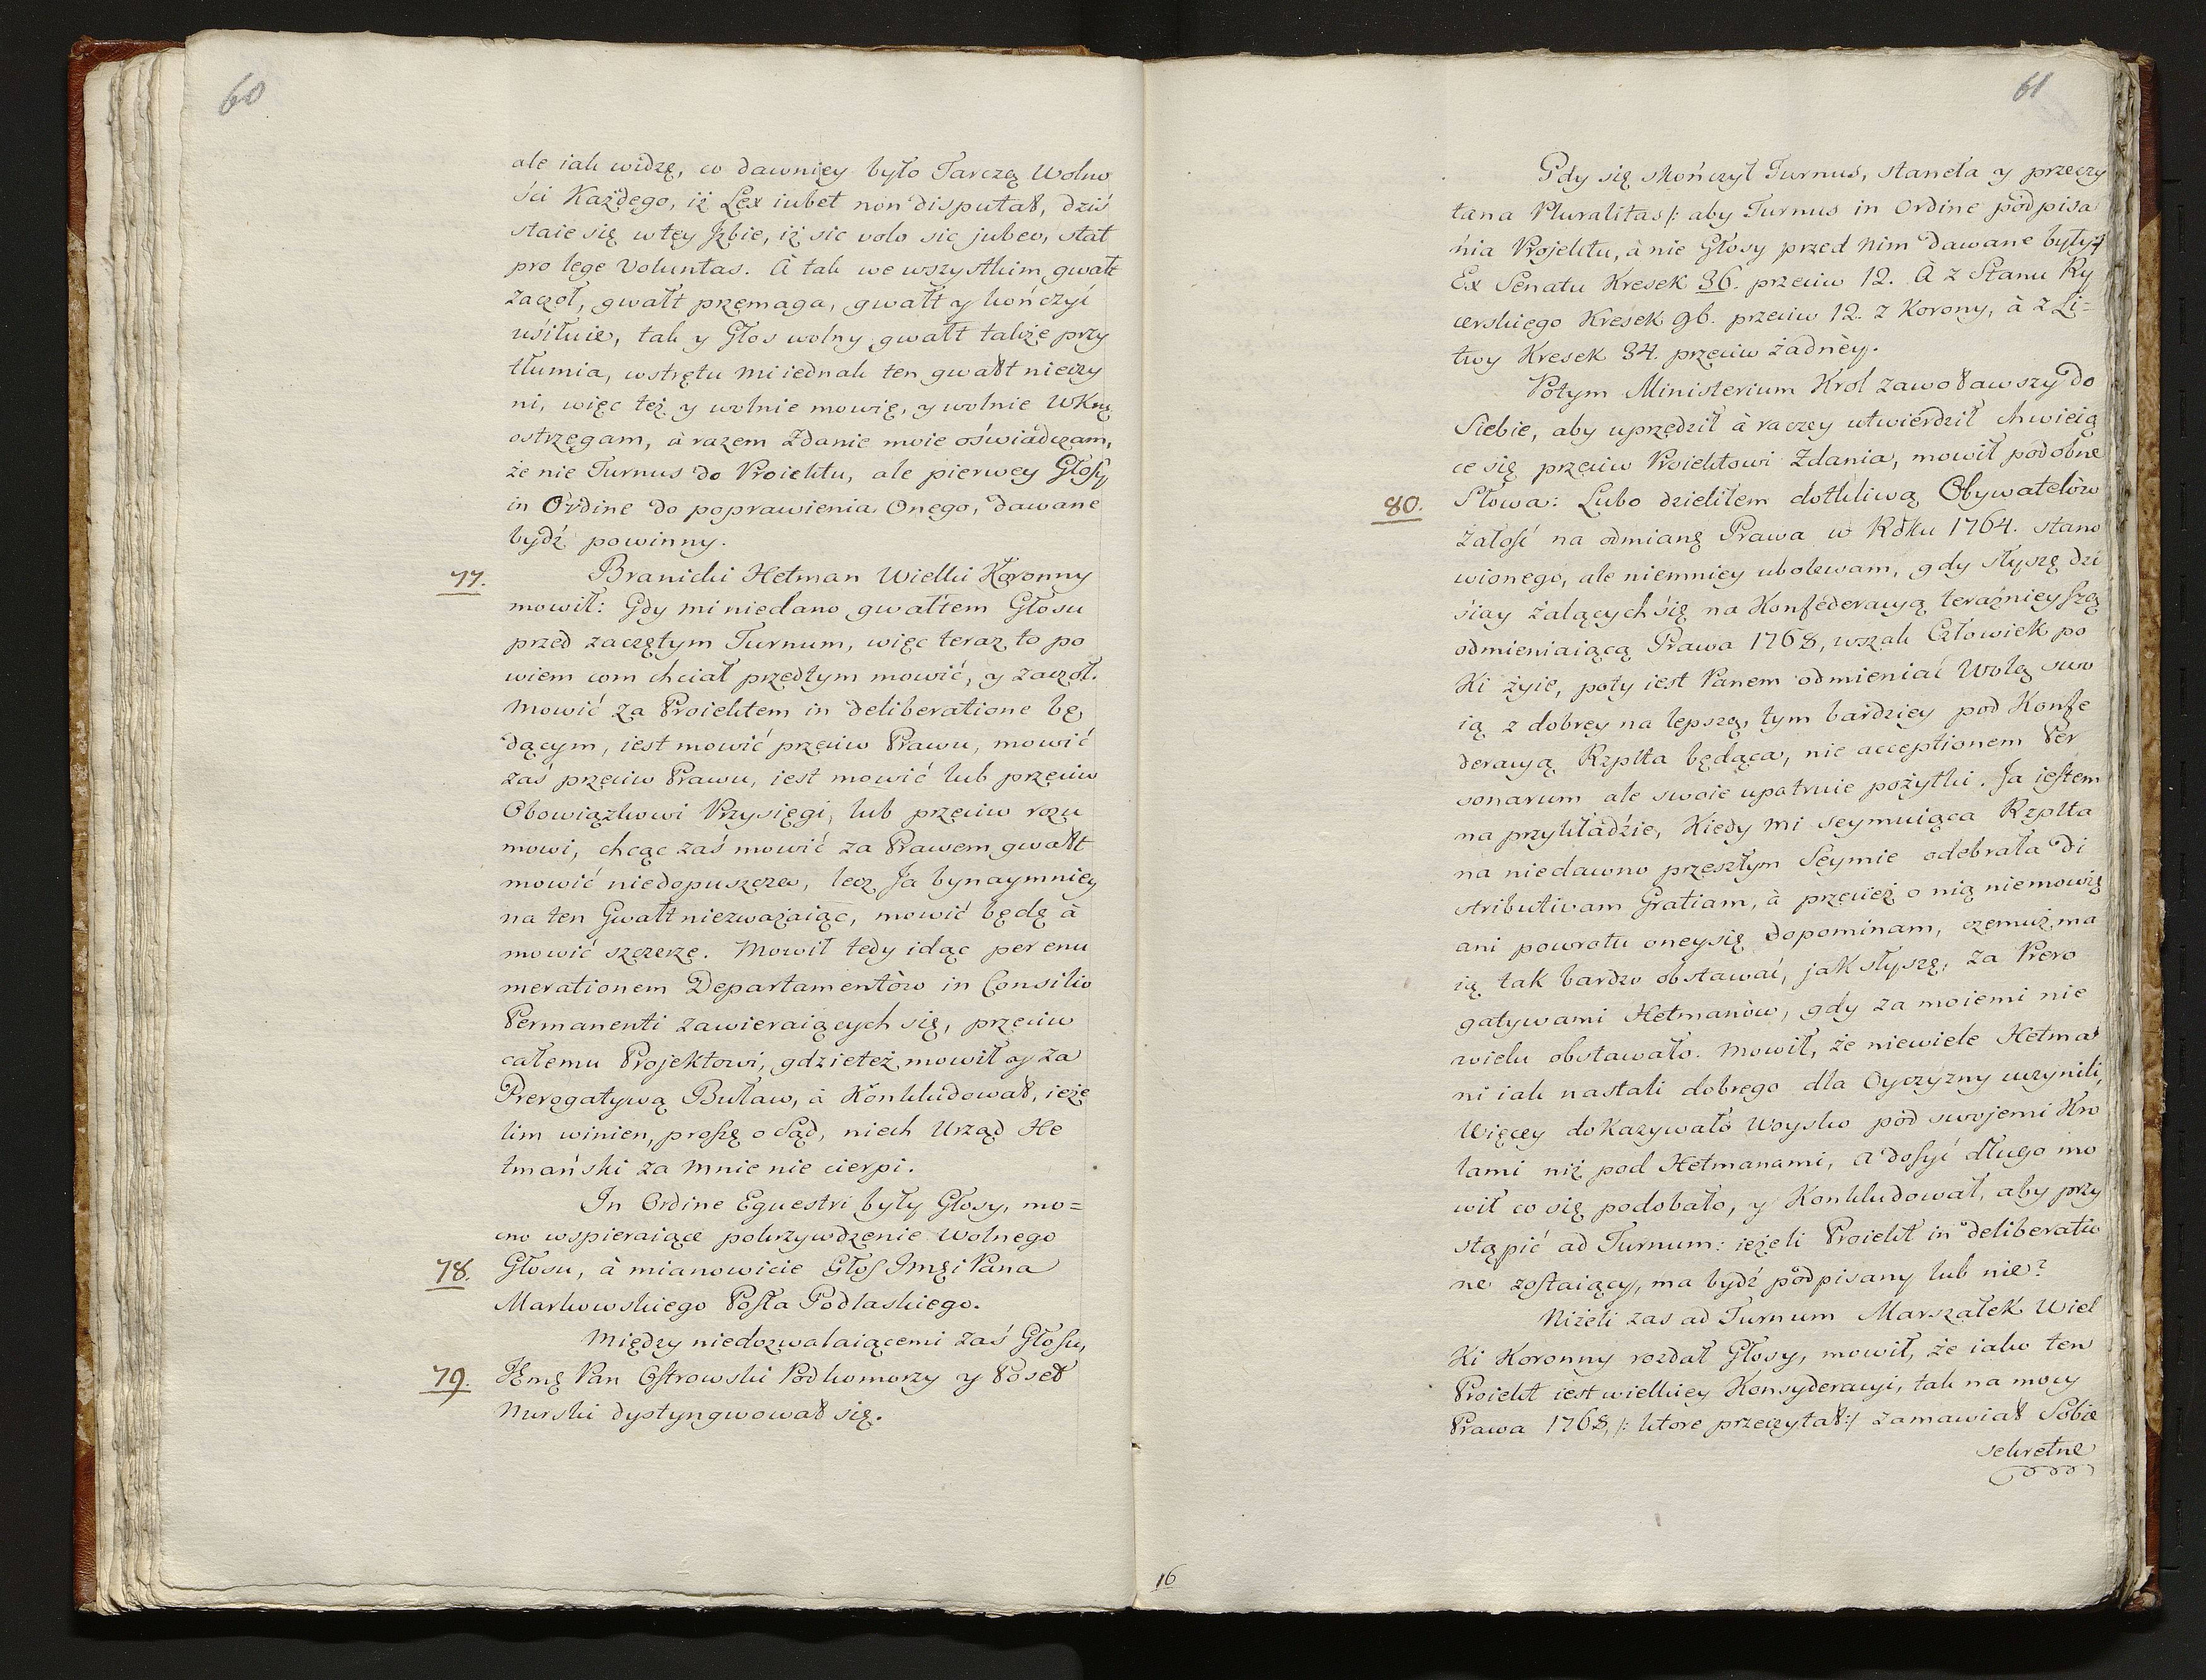 60
ale iak widzę, co dawnięy było Tarczą Wolno
ści Każdego, iż Lex iubet non disputat, dziś
staie się w tęy Jzbie, iż sic volo sic jubeo, stat
pro lege Voluntas. À tak we wszystkim gwałt
zaczoł, gwałt przemaga, gwałt y kończyć
usiłuie, tak y Głos wolny gwałt także przy
tłumia, wstrętu mi iednak ten gwałt nieczy
ni, więc też y wolnie mowię, y wolnie WKmę
ostrzęgam, à razem Zdanie moie oświadczam,
że nie Turnus do Proiektu, ale pierwey Głosy
in Ordine do poprawienia Onego, dawane
bydź powinny.
77. Branicki Hetman Wielki Koronny
mowił: Gdy mi niedano gwałtem Głosu
przed zaczętym Turnum, więc teraz to po
wiem com chciał przedtym mowić, y zaczoł.
Mowić za Proiektem in deliberatione bę
dącym, iest mowić przeciw Prawu, mowić
zaś przeciw Prawu, iest mowić lub przeciw
Obowiązkowi Przysięgi, lub przeciw rozu
mowi, chcąc zaś mowić za Prawem gwałt
mowić niedopuszcza, lecz Ja bynaymniey
na ten Gwałt niezważaiąc, mowić będę à
mowić szczerze. Mowił tedy idąc per enu
merationem Departamentòw in Consilio
Permanenti zawieraiących się, przeciw
całemu Projektowi, gdzie też mowił y za
Prerogatywą Buław, à Konkludował, ieże
lim winien, proszę o Sąd, niech Urząd He
tmański za mnie nie cierpi.
In Ordine Equestri były Głosy, mo=
cno wspieraiące pokrzywdzenie wolnego
78. Głosu, à mianowicie Głos Jmci Pana
Markowskiego Posła Podlaskiego.
Między niedozwalaiącemi zaś Głosu,
79. Jmę Pan Ostrowski Podkomorzy y Poseł
Nurski dystyngwował się.
61
Gdy się skończył Turnus, staneła y przeczy
tana Pluralitas /: aby Turnus in Ordine podpisa
nia Projektu, à nie Głosy przed nim dawane były :/
Ex Senatu Kresek 36. przeciw 12. À z Stanu Ry
cerskiego Kresek 96. przeciw 12. z Korony, à z Li=
twy Kresek 34. przeciw żadnèy.
Potym Ministerium Krol zawoławszy do
Siebie, aby uprzędził à raczey utwierdził chwieią
ce się przeciw Proiektowi Zdania, mowił podobne
80. Słowa: Lubo dzieliłem dotkliwą Obywatelòw
Żałość na odmianę Prawa w Roku 1764. stano
wionego, ale niemniey ubolewam, gdy słyszę dzi
siay żalących się na Konfederacyą teraźnieyszą
odmieniaiącą Prawa 1768, wszak Człowiek po
Ki żyie, poty iest Panem odmieniać Wolę swo
ią z dobrey na lepszą, tym bardziey pod Konfe
deracyą Rzplta będąca, nie acceptionem Per
sonarum ale swoie upatruie pożytki. Ja iestem
na przykładzie, Kiedy mi seymuiąca Rzplta
na niedawno przeszłym Seymie odebrała Di
stributivam Gratiam, à przecież o nią niemowię
ani powrotu oney się dopominam, czemuż ma
ią tak bardzo obstawać, jak słyszę, za Prero
gatywami Hetmanòw, gdy za moiemi nie
wielu obstawało. Mowił, że niewiele Hetma
ni iak nastali dobrego dla Oyczyzny uczynili,
Więcey dokazywało Woysko pod swojemi Kro
lami niż pod Hetmanami, a dosyć długo mo
wił co się podobało, y Konkludował, aby przy
stąpić ad Turnum: ieżeli Proiekt in deliberatio
ne zostaiący, ma bydź podpisany lub nie?
Niżeli zas ad Turnum Marszałek Wiel
Ki Koronny rozdał Głosy, mowił, że iako ten
Proiekt iest wielkiey Konsyderacyi, tak na mocy
Prawa 1768, /: ktore przeczytał :/ zamawiał Sobie
sekretne
16